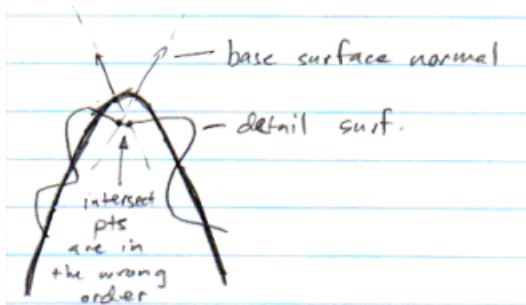 base surface normal
detail surf.
intersect
pts
are in
the wrong
order